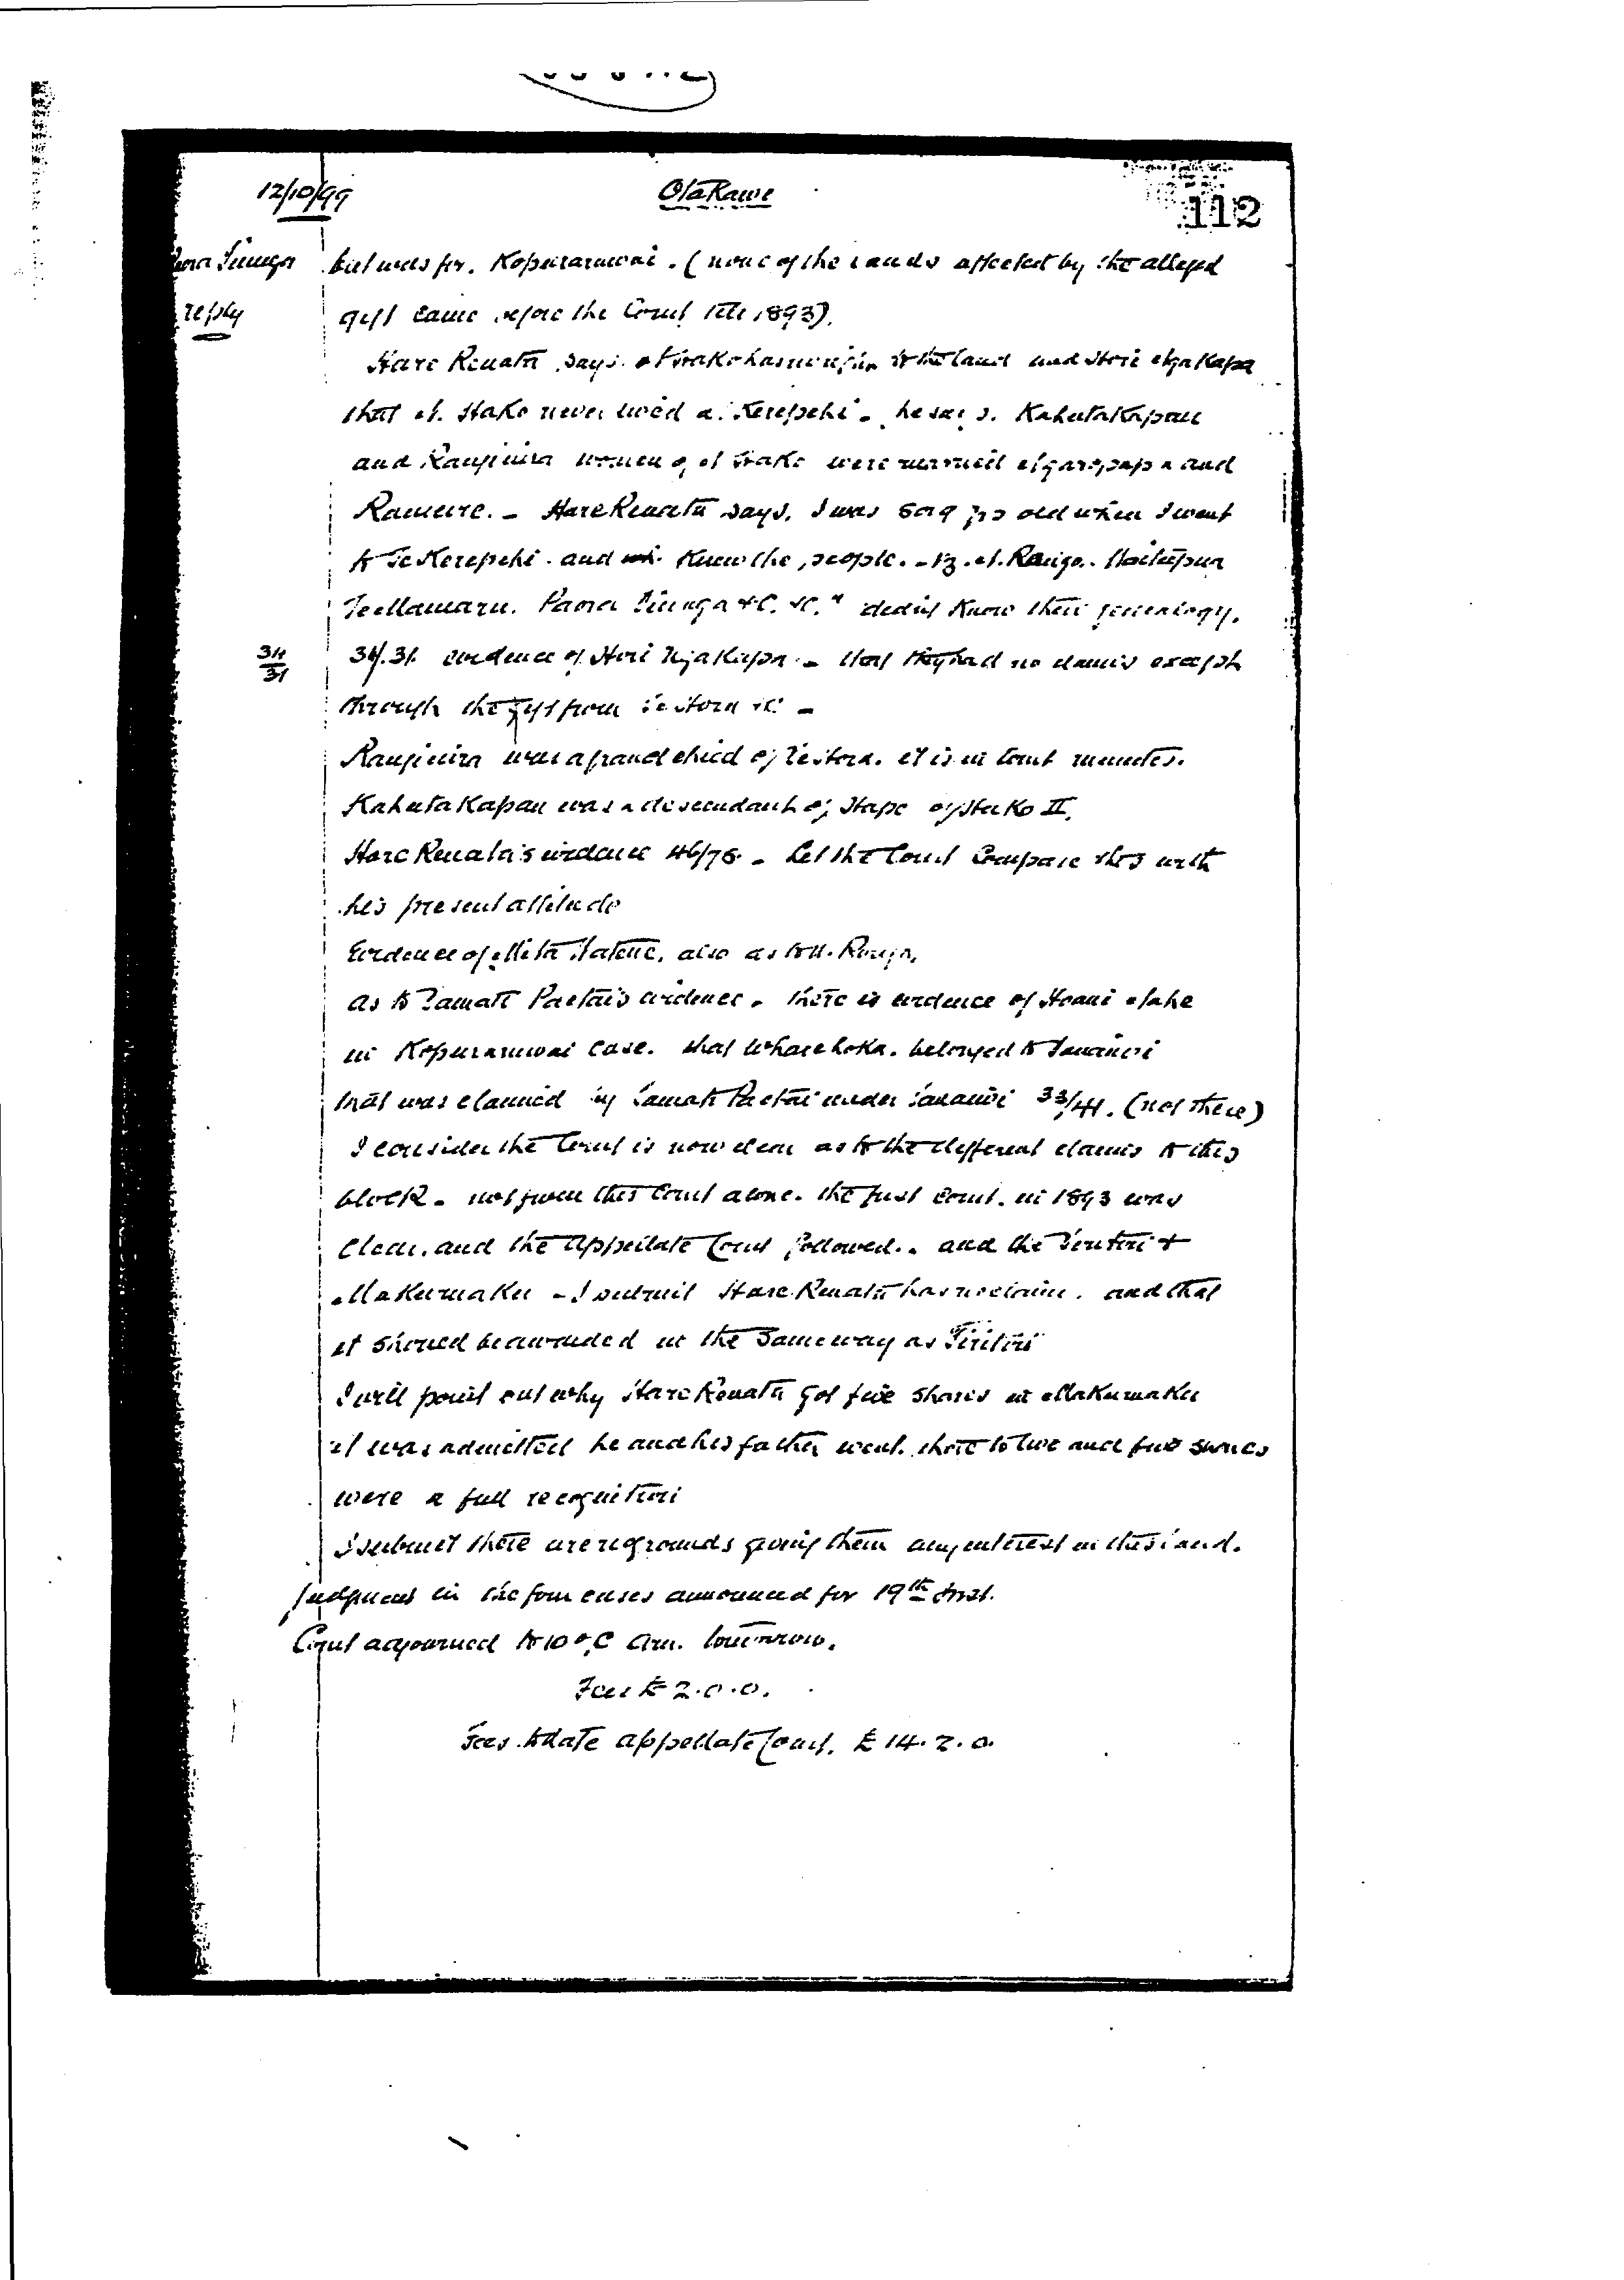 12/10/99
Otakawe
112
reply
but was for. Kopuraruwai. (none of the lands affected by the alleged
gift came before the Court till 1893).
Hare Renata says. to the land and Hori Ngakapa
that N. Hako never lived at Kerepehi. he says. Kahutakapau
and women of N. Hako were married and
Hare Renata says. I was 8 or 9 yrs old when I went
to Te Kerepehi. and knew the people.
Te Mamaru. Paora Tiunga &c. &c. didnt know their genealogy.
34/31
34.31. evidence of Hori Ngakapa - that they had no claims except
through the gift from Te Hora &c -
was a grand child of Te Hora. it is in Court minutes.
Kahutakapau was a descendant of Hape of Hako II.
Hare Renata's evidence 46/76. - Let the Court compare this with
his present attitude
Evidence of Mita also as to N.
as to Tamati Paetai's evidence. there is evidence of Hoani
in Kopuraruwai case. that Wharehoka. belonged to
that was claimed by Tamati Paetai under 33/41. (not there)
I consider the Court is now clear as to the different claims to this
block - not from this Court alone. the first Court. in 1893 was
Clear. and the Appellate Court followed. and the Tiritiri &
Makumaku - I submit Hare Renata has no claim. and that
it should be awarded in the same way as Tiritiri
I will point out why Hare Renata got five shares in Makumaku
it was admitted he and his father went there to live and five shares
were a full recognition
I submit there are no grounds giving them any interest in this land.
Judgment in the four cases announced for 19th inst.
Court adjourned to 10 o,C am. tomorrow.
Fees £ 2.0.0.
Fees to date Appellate Court. £ 14.2.0.